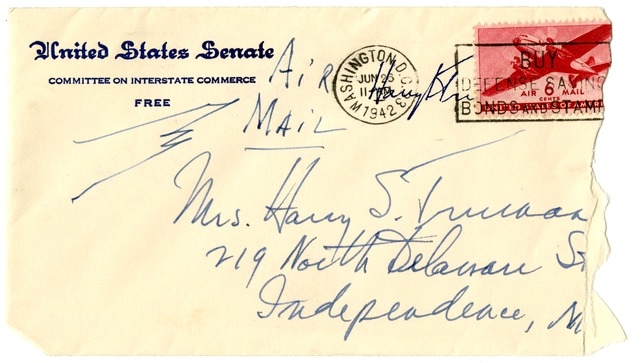 United States Senate
COMMITTEE ON INTERSTATE COMMERCE
FREE
AIR
MAIL
WASHINGTON, D.C.
JUN 26
1942
BUY
DEFENSE SAVING
BONDS AND STAM
AIR 6 MAIL
CENTS
Mrs. Harry S. Truman
219 North Delaware St
Independence, M